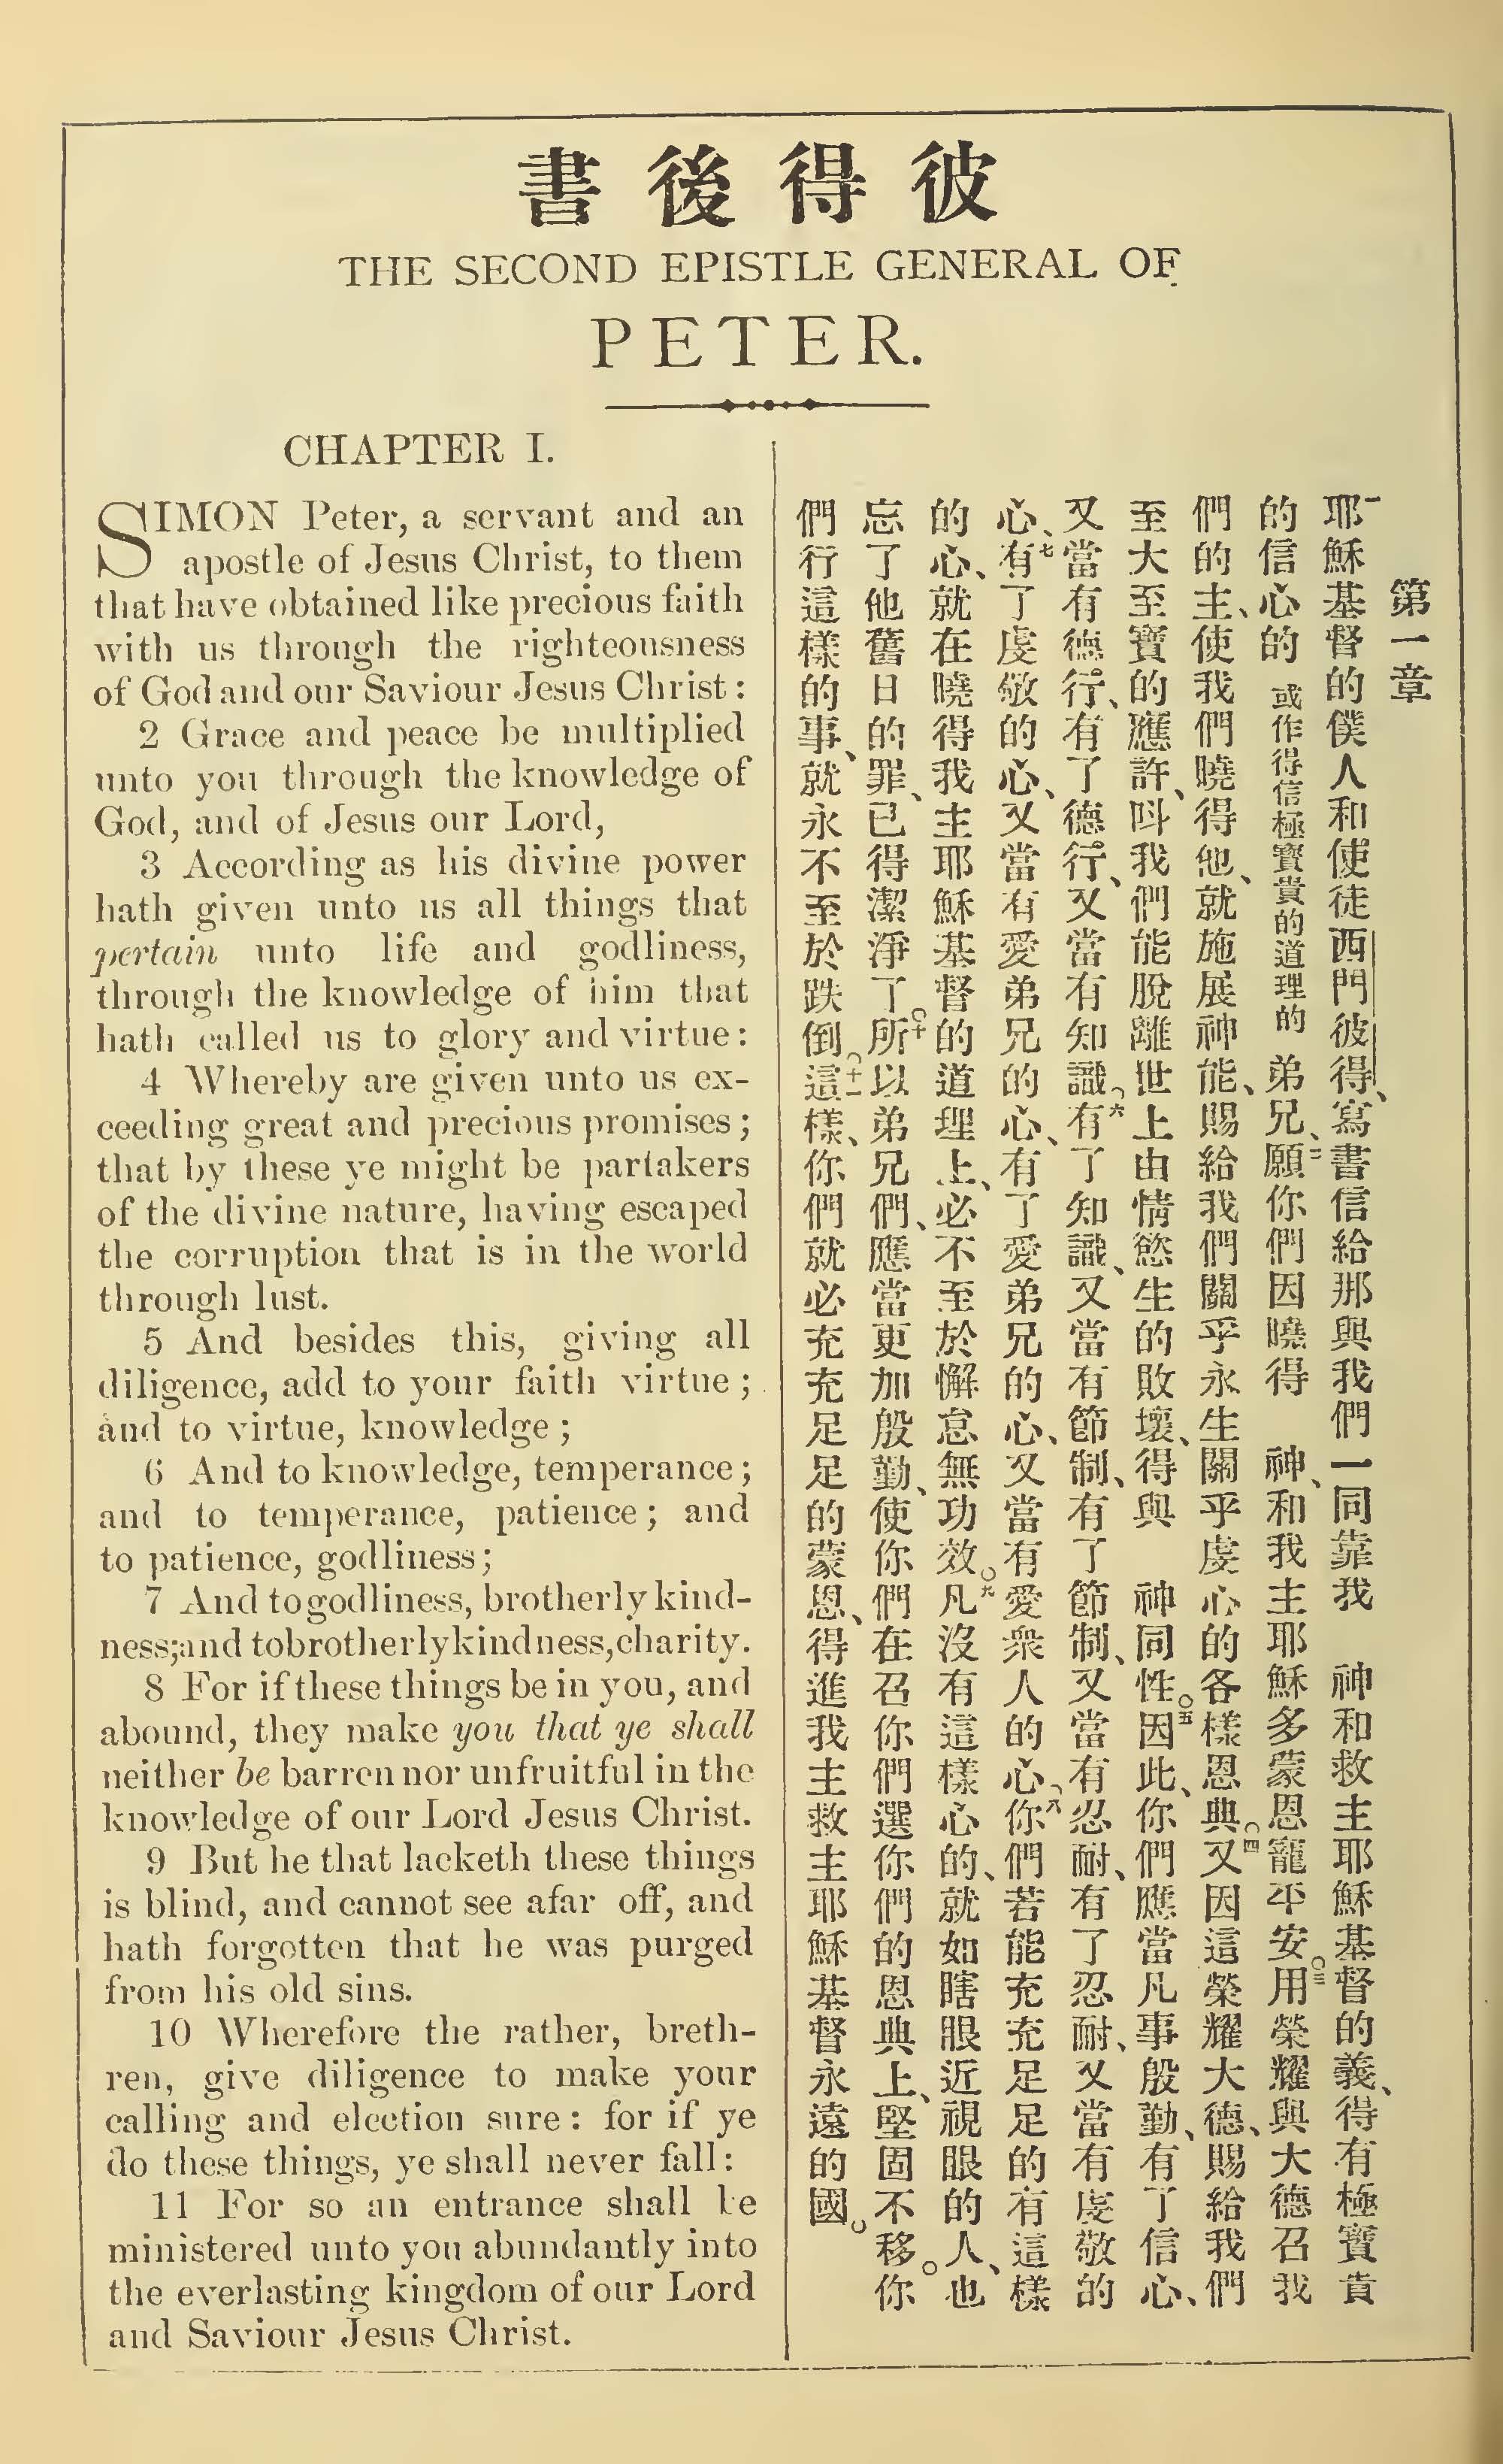 彼得後書
THE SECOND EPISTLE GENERAL OF
PETER.
CHAPTER I.
SIMON Peter, a servant and an
apostle of Jesus Christ, to them
that have obtained like precious faith
with us through the righteousness
of God and our Saviour Jesus Christ:
2 Grace and peace be multiplied
unto you through the knowledge of
God, and of Jesus our Lord,
3 According as his divine power
hath given unto us all things that
pertain unto life and godliness,
through the knowledge of him that
hath called us to glory and virtue:
4 Whereby are given unto us ex-
ceeding great and precious promises;
that by these ye might be partakers
of the divine nature, having escaped
the corruption that is in the world
through lust.
5 And besides this, giving all
diligence, add to your faith virtue;
and to virtue, knowledge;
6 And to knowledge, temperance;
and to temperance, patience; and
to patience, godliness;
7 And to godliness, brotherly kind-
ness; and to brotherly kindness, charity.
8 For if these things be in you, and
abound, they make you that ye shall
neither be barren nor unfruitful in the
knowledge of our Lord Jesus Christ.
9 But he that lacketh these things
is blind, and cannot see afar off, and
hath forgotten that he was purged
from his old sins.
10 Wherefore the rather, breth-
ren, give diligence to make your
calling and election sure: for if ye
do these things, ye shall never fall:
11 For so an entrance shall be
ministered unto you abundantly into
the everlasting kingdom of our Lord
and Saviour Jesus Christ.
第一章
一耶穌基督的僕人和使徒西門彼得、寫書信給那與我們一同靠我 神和救主耶穌基督的義、得有極寶貴
的信心的 或作得信極寶貴的道理的 弟兄、二願你們因曉得 神、和我主耶穌多蒙恩寵平安。三用榮耀與大德召我
們的主、使我們曉得他、就施展神能、賜給我們關乎永生關乎虔心的各樣恩典。四又因這榮耀大德、賜給我們
至大至寶的應許、呌我們能脫離世上由情慾生的敗壞、得與 神同性。五因此、你們應當凡事殷勤、有了信心、
又當有德行、有了德行、又當有知識。六有了知識、又當有節制、有了節制、又當有忍耐、有了忍耐、又當有虔敬的
心、七有了虔敬的心、又當有愛弟兄的心、有了愛弟兄的心、又當有愛衆人的心。八你們若能充充足足的有這樣
的心、就在曉得我主耶穌基督的道理上、必不至於懈怠無功效。九凡沒有這樣心的、就如瞎眼近視眼的人、也
忘了他舊日的罪、已得潔淨了。十所以弟兄們、應當更加殷勤、使你們在召你們選你們的恩典上、堅固不移。你
們行這樣的事、就永不至於跌倒。十一這樣、你們就必充充足足的蒙恩、得進我主救主耶穌基督永遠的國。